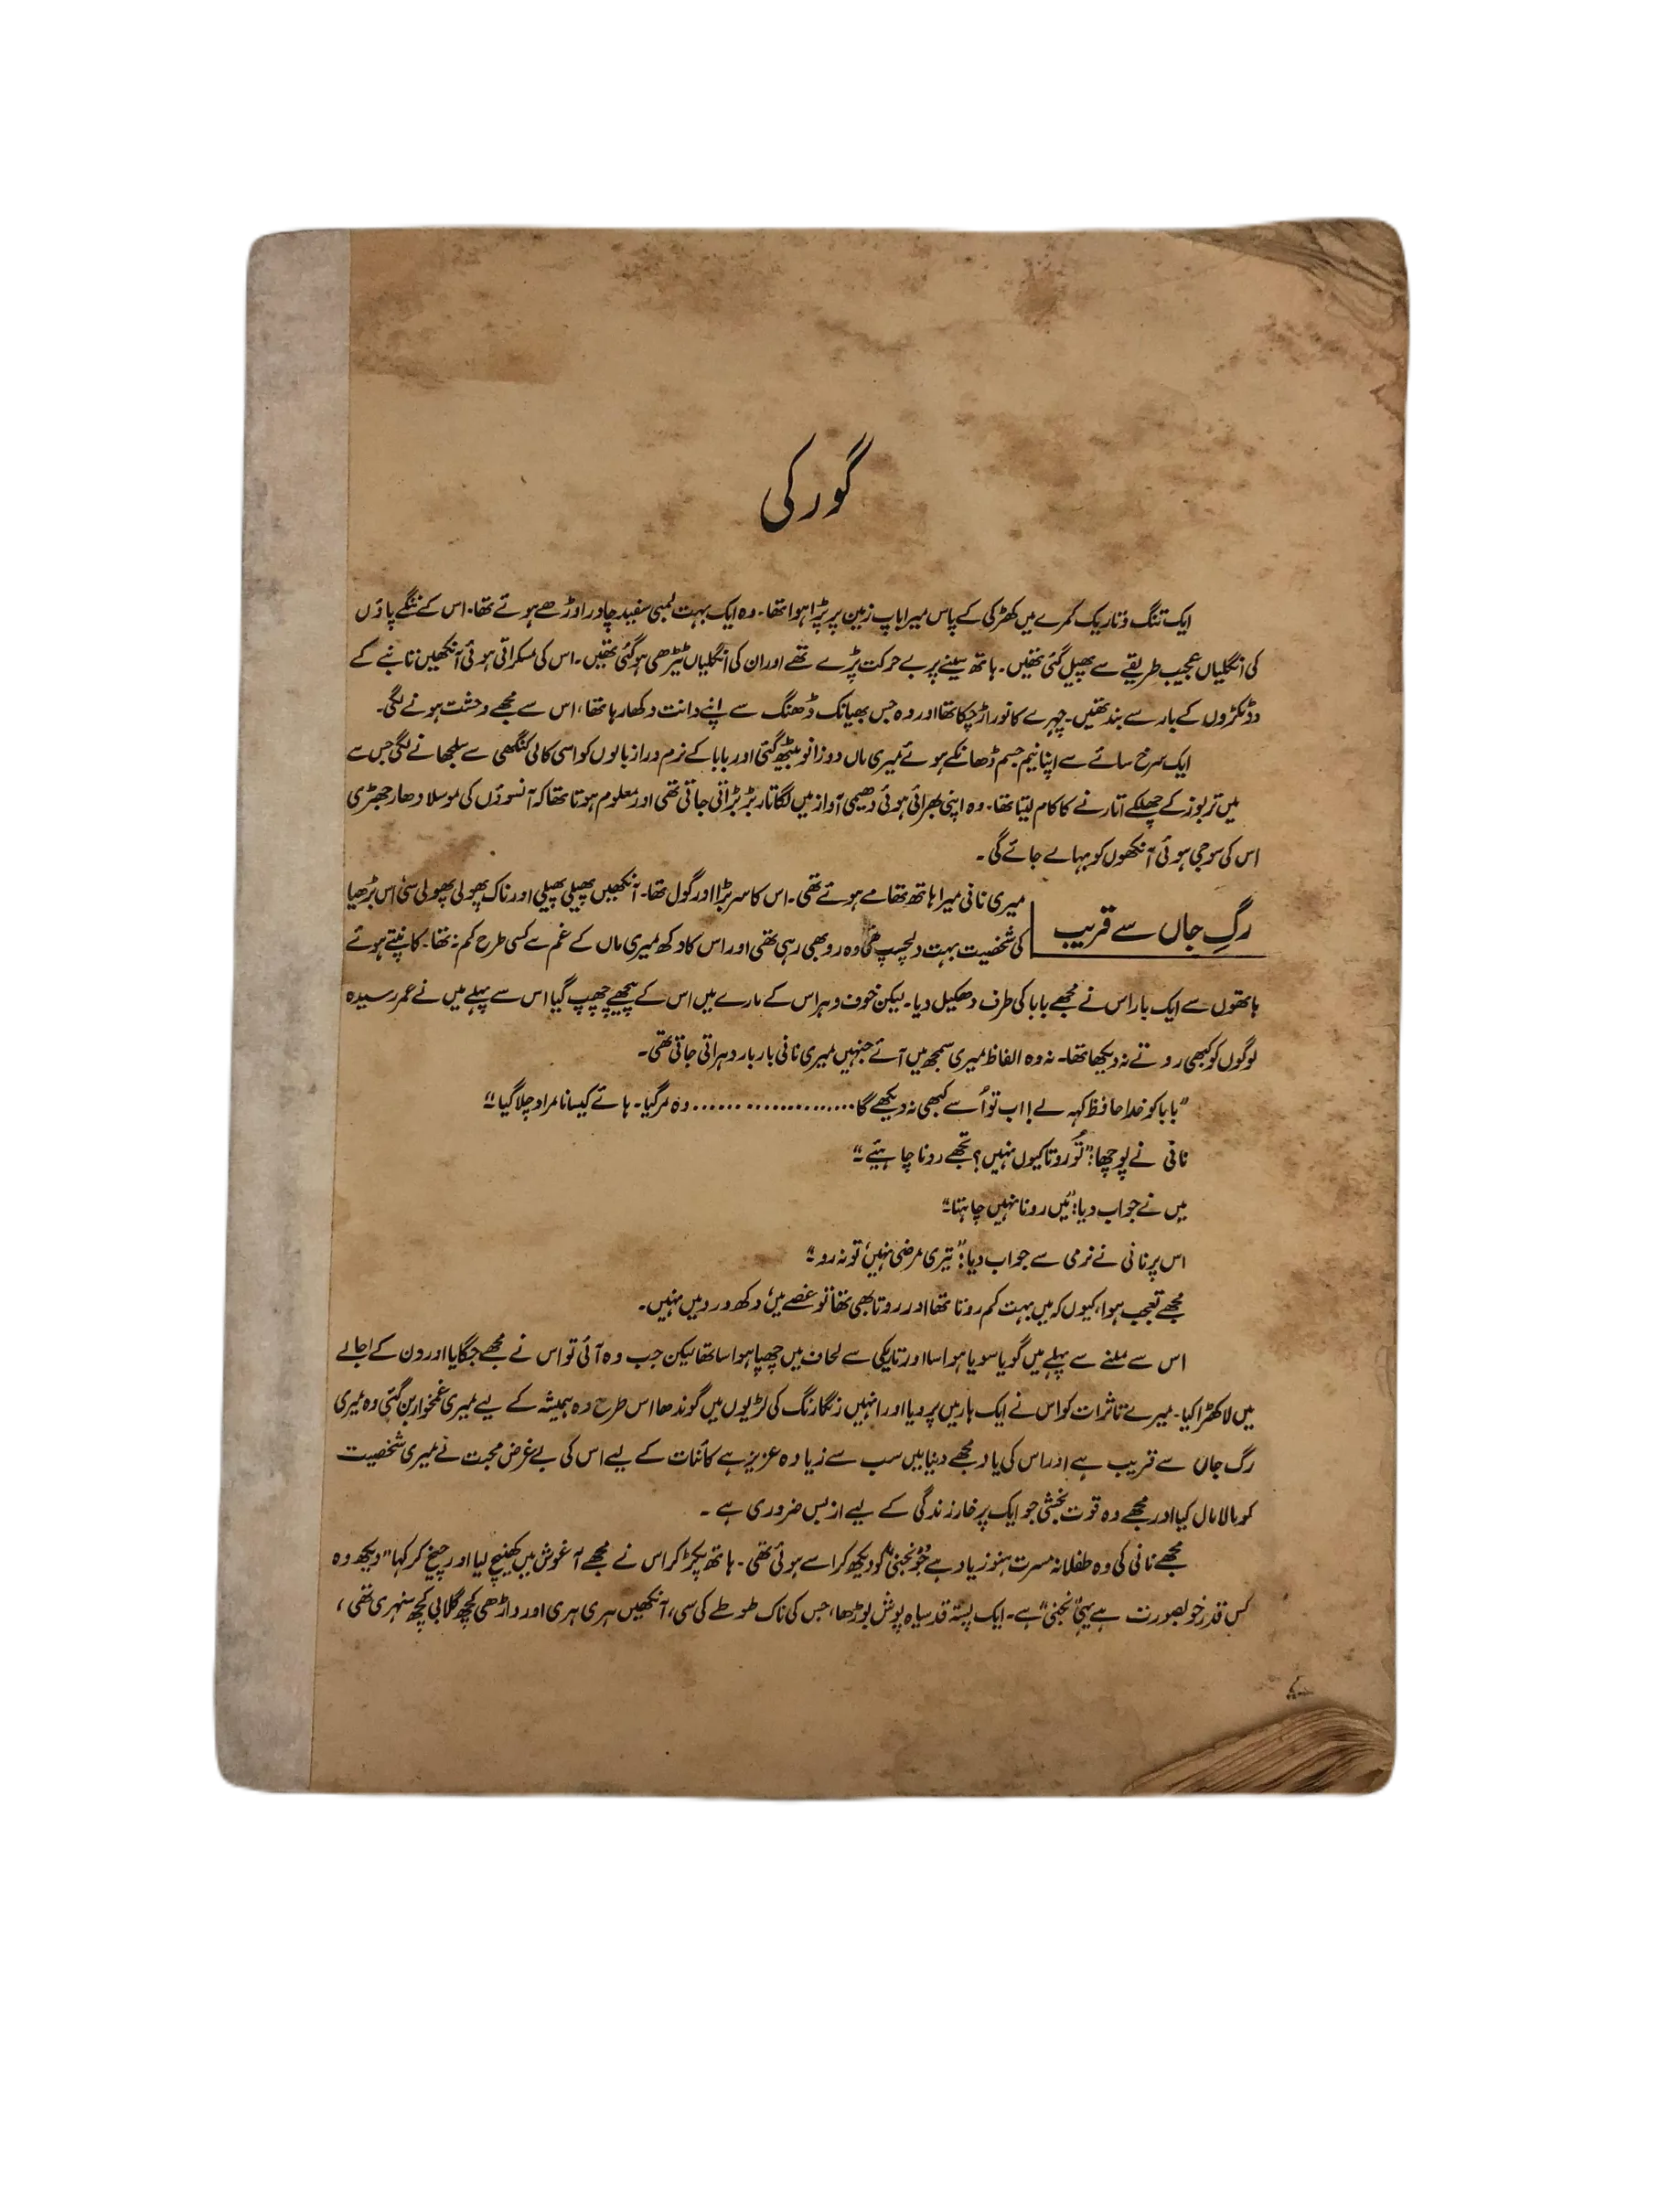 گورکی
ایک تنگ و تاریک کمرے میں کھڑکی کے پاس میرا باپ زمین پر پڑا ہوا تھا۔ وہ ایک بہت لمبی سفید چادر اوڑھے ہوئے تھا۔ اس کے ننگے پاؤں
کی انگلیاں عجیب طریقے سے پھیل گئی تھیں۔ ہاتھ سینے پر بے حرکت پڑے تھے اور ان کی انگلیاں ٹیڑھی ہو گئی تھیں۔ اس کی مسکراتی ہوئی آنکھیں تانبے کے
دو ٹکڑوں کے بار سے بند تھیں۔ چہرے کا نور اڑ چکا تھا اور وہ جس بھیانک ڈھنگ سے اپنے دانت دکھا رہا تھا، اس سے مجھے وحشت ہونے لگی۔
ایک سرخ سائے سے اپنا نیم جسم ڈھانکے ہوئے میری ماں دو زانو بیٹھ گئی اور بابا کے نرم دراز بالوں کو اسی کالی کنگھی سے سلجھانے لگی جس سے
میں تربوز کے چھلکے اتارنے کا کام لیتا تھا۔ وہ اپنی بھرائی ہوئی دھیمی آواز میں لگاتار بڑبڑاتی جاتی تھی اور معلوم ہوتا تھا کہ آنسوؤں کی موسلادھار جھڑی
اس کی سوجی ہوئی آنکھوں کو بہا لے جائے گی۔
رگِ جاں سے قریب
میری نانی میرا ہاتھ تھامے ہوئے تھی۔ اس کا سر بڑا اور گول تھا۔ آنکھیں پھیلی پھیلی اور ناک پھولی پھولی سی، اس بڑھیا
کی شخصیت بہت دلچسپ تھی وہ رو بھی رہی تھی اور اس کا دکھ میری ماں کے غم سے کسی طرح کم نہ تھا۔ کانپتے ہوئے
ہاتھوں سے ایک بار اس نے مجھے بابا کی طرف دھکیل دیا۔ لیکن خوف و ہراس کے مارے میں اس کے پیچھے چھپ گیا اس سے پہلے میں نے عمر رسیدہ
لوگوں کو کبھی روتے نہ دیکھا تھا۔ نہ وہ الفاظ میری سمجھ میں آئے جنہیں میری نانی بار بار دہراتی جاتی تھی۔
"بابا کو خدا حافظ کہہ لے! اب تو اُسے کبھی نہ دیکھے گا...................... وہ مر گیا۔ ہائے کیسا نامراد چلا گیا۔"
نانی نے پوچھا: "تُو روتا کیوں نہیں؟ تجھے رونا چاہیئے۔"
میں نے جواب دیا: "میں رونا نہیں چاہتا۔"
اس پر نانی نے نرمی سے جواب دیا: "تیری مرضی نہیں، تو نہ رو۔"
مجھے تعجب ہوا، کیوں کہ میں بہت کم روتا تھا اور روتا بھی تھا تو غصے میں، دکھ درد میں نہیں۔
اس سے ملنے سے پہلے میں گویا سویا ہوا سا اور تاریکی سے لحاف میں چھپا ہوا سا تھا لیکن جب وہ آئی تو اس نے مجھے جگایا اور دن کے اجالے
میں لا کھڑا کیا۔ میرے تاثرات کو اس نے ایک ہار میں پرو دیا اور انہیں رنگا رنگ کی لڑیوں میں گوندھا اس طرح وہ ہمیشہ کے لیے میری غمخوار بن گئی وہ میری
رگ جاں سے قریب ہے اور اس کی یاد مجھے دنیا میں سب سے زیادہ عزیز ہے کائنات کے لیے اس کی بے غرض محبت نے میری شخصیت
کو مالا مال کیا اور مجھے وہ قوت بخشی جو ایک پر خار زندگی کے لیے ازبس ضروری ہے۔
مجھے نانی کی وہ طفلانہ مسرت ہنوز یاد ہے جو "نجنی" کو دیکھ کر اسے ہوئی تھی۔ ہاتھ پکڑ کر اس نے مجھے آغوش میں کھینچ لیا اور چیخ کر کہا "دیکھ وہ
کس قدر خوبصورت ہے یہی "نجنی" ہے۔ ایک پستہ قد سیاہ پوش بوڑھا، جس کی ناک طوطے کی سی، آنکھیں ہری ہری اور داڑھی کچھ گلابی کچھ سنہری تھی،